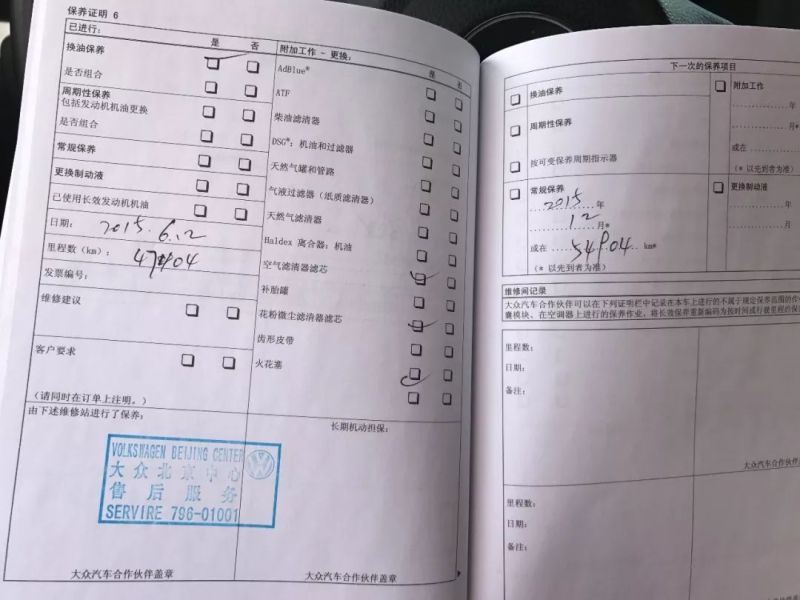 保养证明 6
已进行：
是 否
换油保养
是否组合
周期性保养
包括发动机机油更换
是否组合
常规保养
更换制动液
已使用长效发动机机油
日期： 2015.6.2
里程数（km）： 47904
发票编号：
维修建议
客户要求
（请同时在订单上注明。）
附加工作 - 更换：
是 否
AdBlue®
ATF
柴油滤清器
DSG®：机油和过滤器
天然气罐和管路
气液过滤器（纸质滤清器）
天然气滤清器
Haldex 离合器：机油
空气滤清器滤芯
补胎罐
花粉微尘滤清器滤芯
齿形皮带
火花塞
由下述维修站进行了保养：
VOLKSWAGEN BEIJING CENTER
大众北京中心
售后服务
SERVIRE 796-01001
大众汽车合作伙伴盖章
长期机动担保：
大众汽车合作伙伴盖章
下一次的保养项目
换油保养
周期性保养
按可变保养周期指示器
常规保养
2015 年
12 月*
或在 54904 km*
（* 以先到者为准）
附加工作
年
月*
或在
（* 以先到者为准）
更换制动液
年
月
维修间记录
大众汽车合作伙伴可以在下列证明栏中记录在本车上进行的不属于规定保养范围的作
囊模块、在空调器上进行的保养作业，将长效保养重新编码为按时间或行驶里程的保
里程数：
日期：
备注：
大众汽车合作伙
里程数：
日期：
备注：
大众汽车合作伙伴